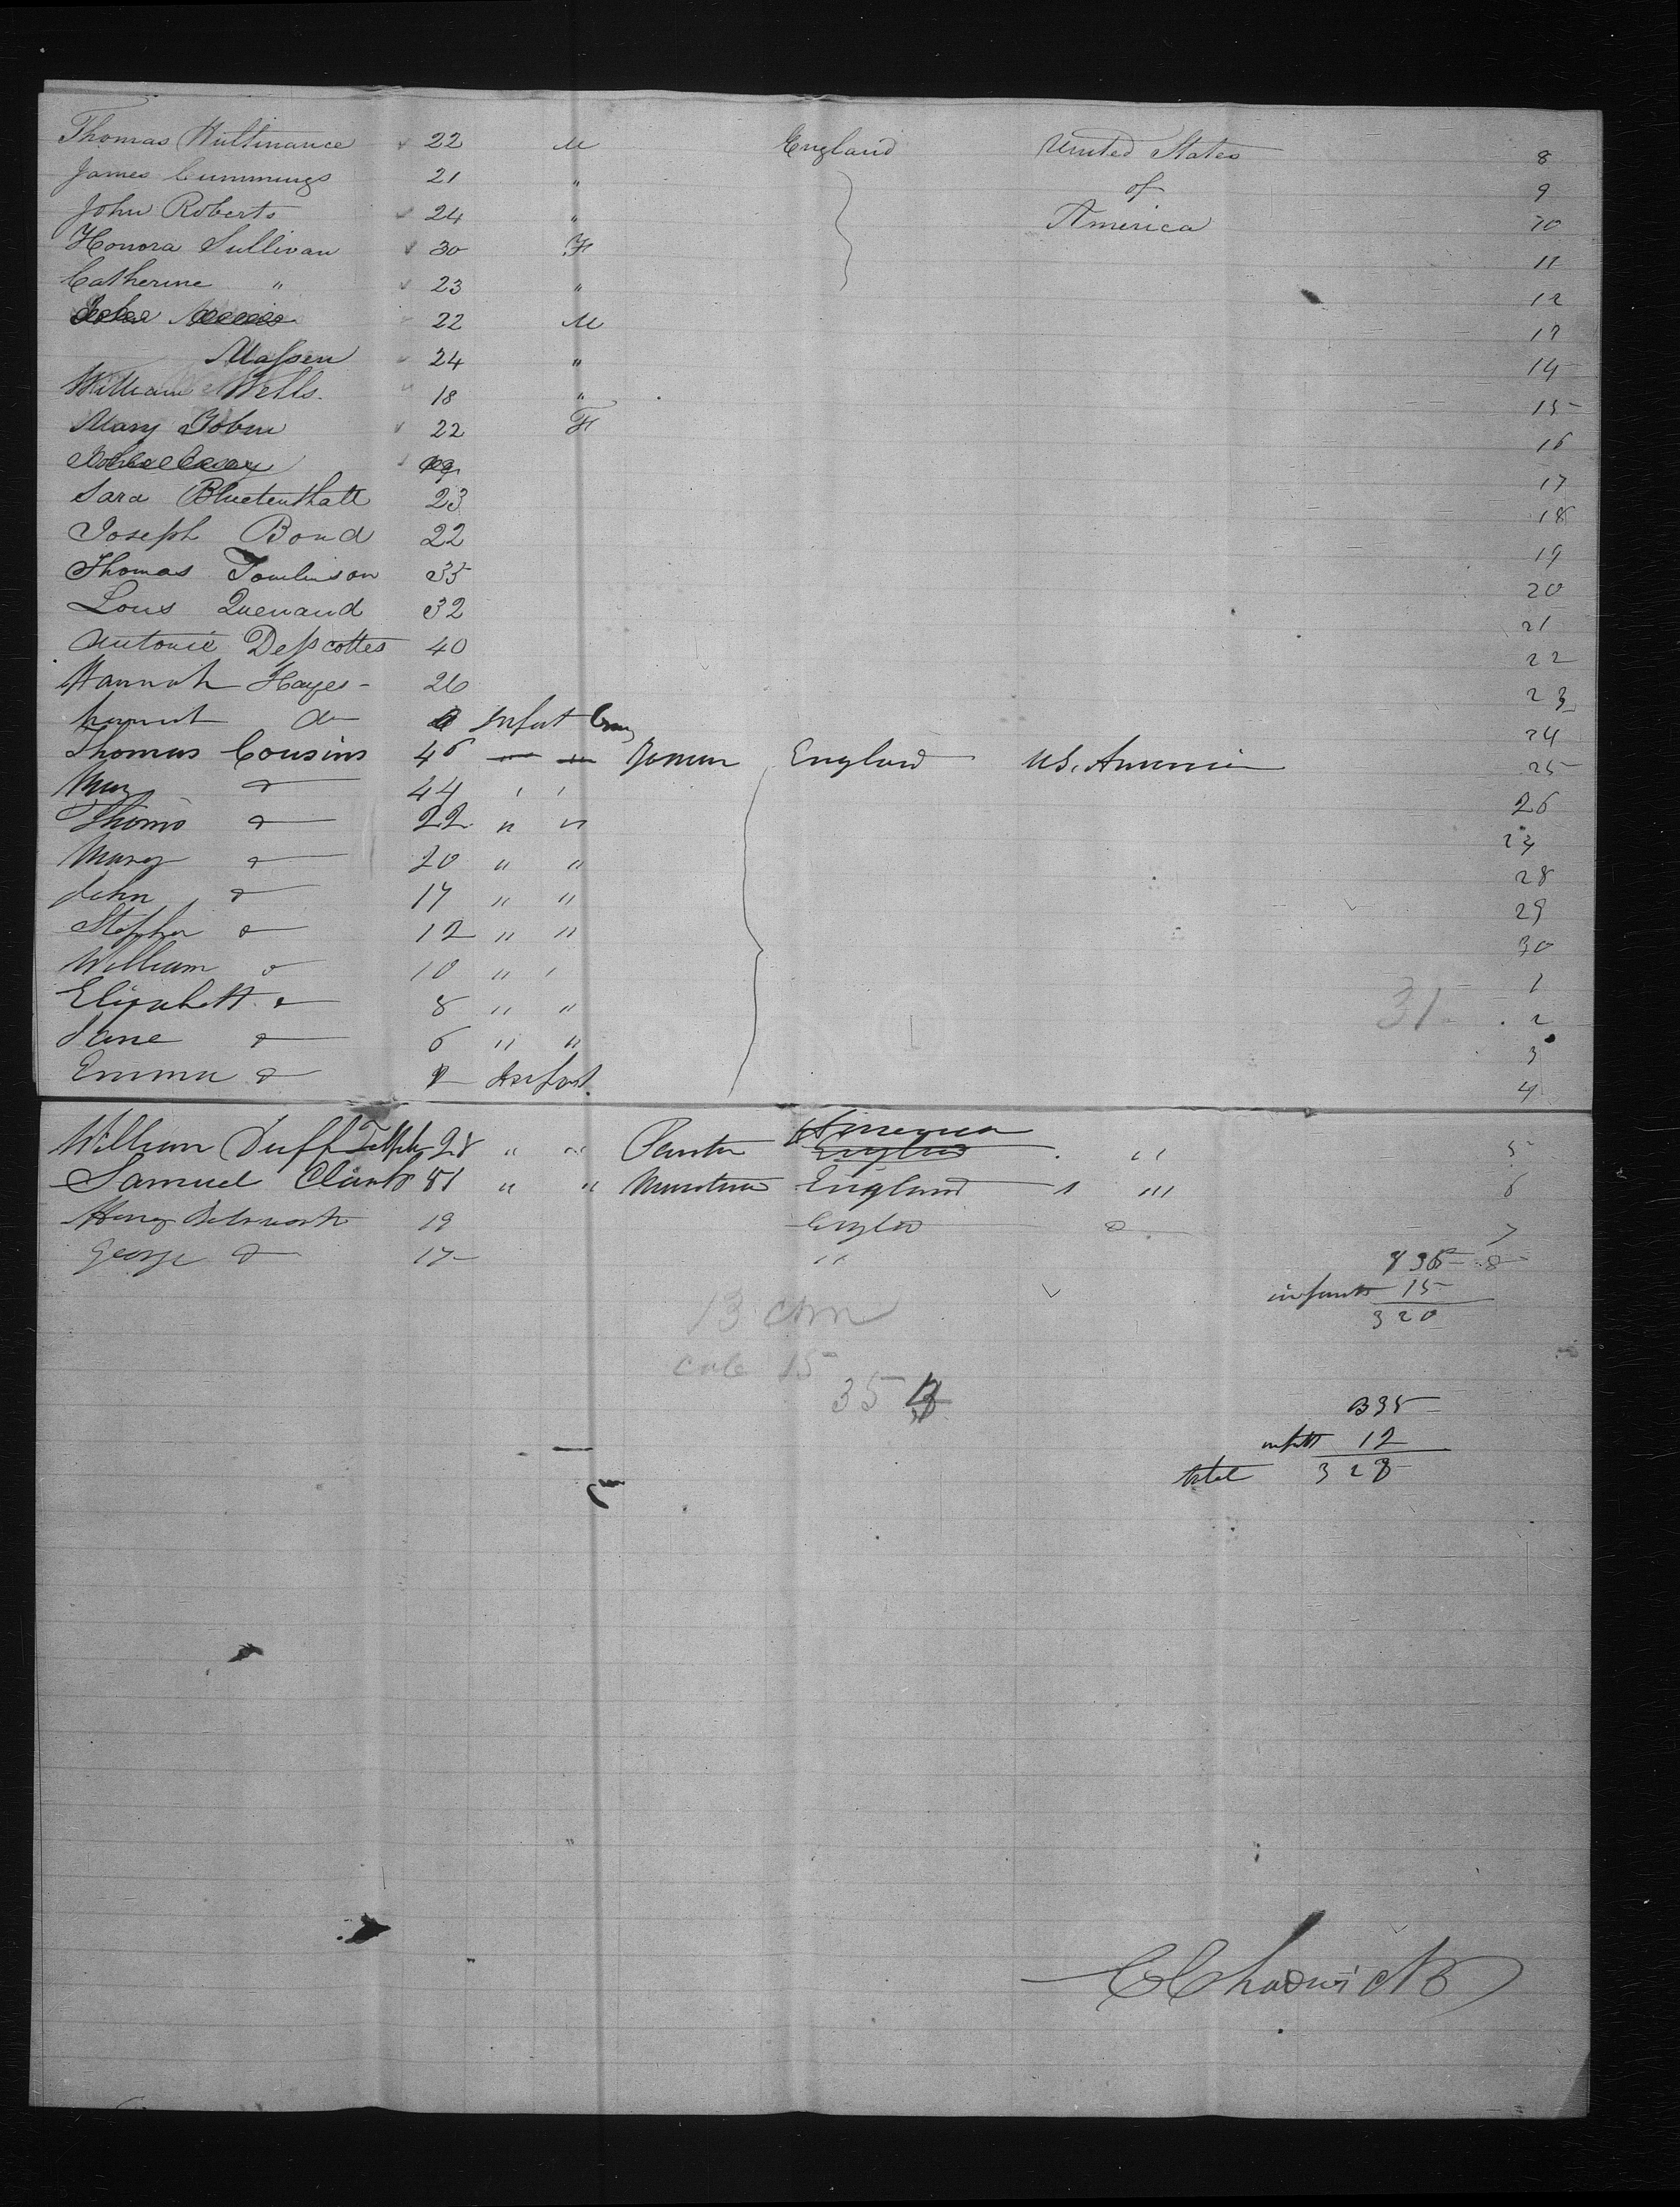 Thomas Hultinance 22 M England United States 8
James Cummings 21 " of 9
John Roberts 24 " America 10
Honora Sullivan 30 F 11
Catherine " 23 " 12
22 M 13
24 " 14
William Wells 18 " 15
Mary Tobin 22 F 16
17
Sara Bluetenthall 23 18
Joseph Bond 22 19
Thomas Tomlinson 35 20
Lous Quenaud 32 21
Antonie Descottes 40 22
Hannah Hayes 26 23
do Infant 24
Thomas Cousins 46 England U.S. America 25
Mary do 44 " " 26
Thomas do 22 " " 27
Mary do 20 " " 28
John do 17 " " 29
Stephen do 12 " " 30
William do 10 " " 1
Elizabeth do 8 " " 31 2
Jane do 6 " " 3
Emma do Infant 4
William Duff 28 " " America England " 5
Samuel Clark 51 " " England " 6
Henry 19 England do 7
George do 17 " 335 8
infants 15
320
13
15
35
335
infts 12
total 323
C Chadwick